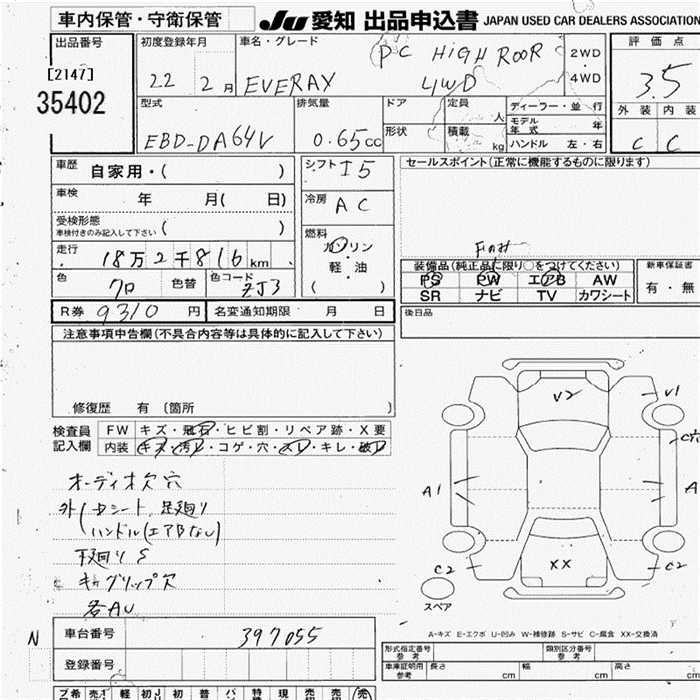 車内保管・守衛保管 JU 愛知 出品申込書 JAPAN USED CAR DEALERS ASSOCIATION
出品番号 初度登録年月 車名・グレード 評価点
[2147] 22 2月 EVERAY PC HIGH ROOR 4WD 2WD ・ 4WD 3.5
35402
型式 排気量 ドア 定員 人 ディーラー・並行 外装 内装
EBD-DA64V 0.65cc 形状 積載 kg モデル年式 年 C C
ハンドル 左・右
車歴 自家用・( ) シフト I5 セールスポイント(正常に機能するものに限ります)
車検 年 月( 日) 冷房 AC
受検形態 車検付きのみ記入して下さい ( )
走行 18万2千816km 燃料 ガソリン・軽・油 ( )
装備品(純正品に限り○をつけてください) 新車保証書
色 クロ 色替 色コード ZJ3 PS PW エアB AW 有・無
SR ナビ TV カワシート
R券 9310円 名変通知期限 月 日 後日品
注意事項申告欄(不具合内容等は具体的に記入して下さい)
修復歴 有 〔箇所 〕
検査員記入欄 FW キズ・飛石・ヒビ割・リペア跡・X要
内装 キズ・汚レ・コゲ・穴・スレ・キレ・破レ
V2 V1
C穴
A1 A
C2 XX C2
スペア
オーディオ欠穴
外(中シート、足廻り
ハンドル(エアBなし)
下廻りS
グリップ欠
各AU
A-キズ E-エクボ U-凹み W-補修跡 S-サビ C-腐食 XX-交換済
N 車台番号 397055
登録番号
形式指定番号 参考 類別区分番号 参考
車庫証明用 参考 長さ cm 幅 cm 高さ cm